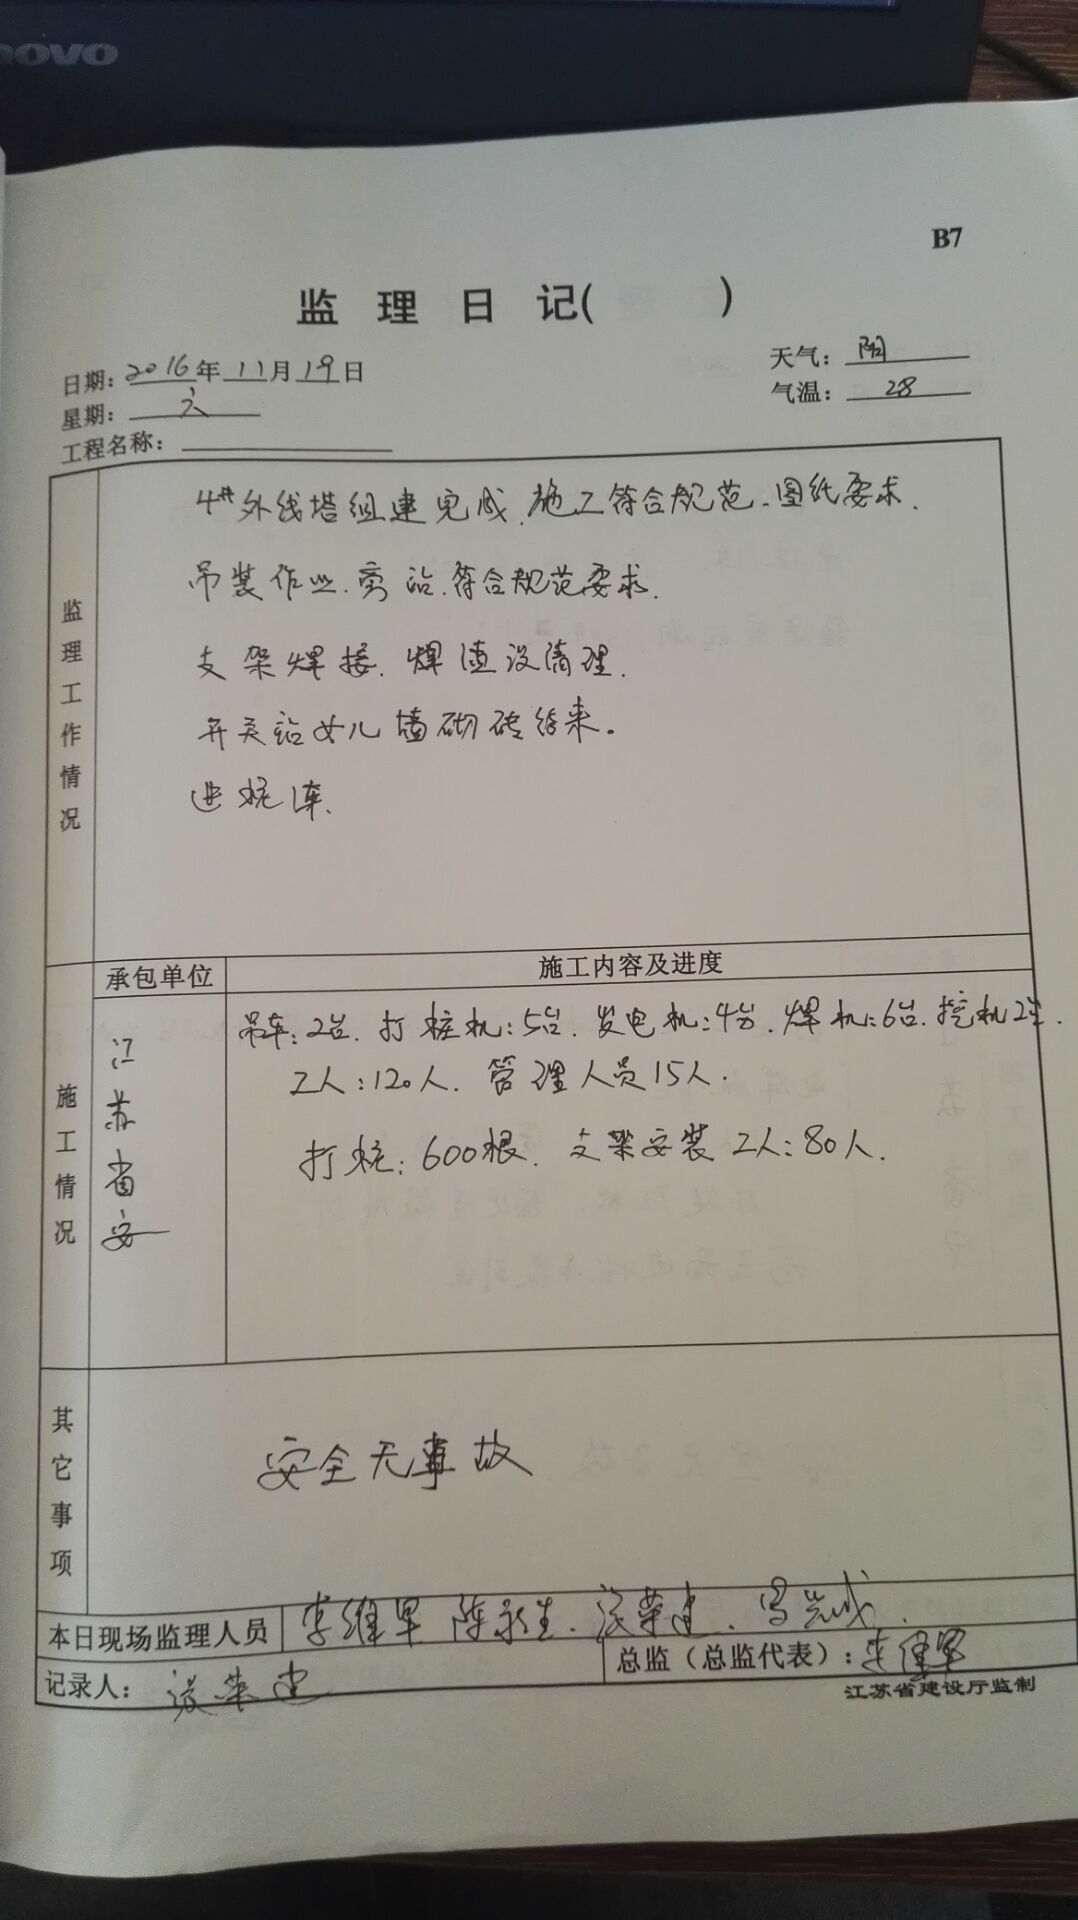 novo
B7
监 理 日 记(　　)
日期: 2016年 11月 19日
天气: 阴
星期: 六
气温: 28
工程名称:
监理工作情况
4#外线塔组建完成.施工符合规范.图纸要求.
吊装作业.旁站.符合规范要求.
支架焊接.焊渣没清理.
开关站女儿墙砌砖结束。
进桩1车.
施工情况
承包单位
施工内容及进度
江苏省安
吊车:2台.打桩机:5台.发电机:4台.焊机:6台.挖机2台.
工人:120人.管理人员15人.
打桩:600根.支架安装工人:80人.
其它事项
安全无事故
本日现场监理人员 李维军 陈 荣建.
记录人: 荣建
总监（总监代表）: 李维军
江苏省建设厅监制